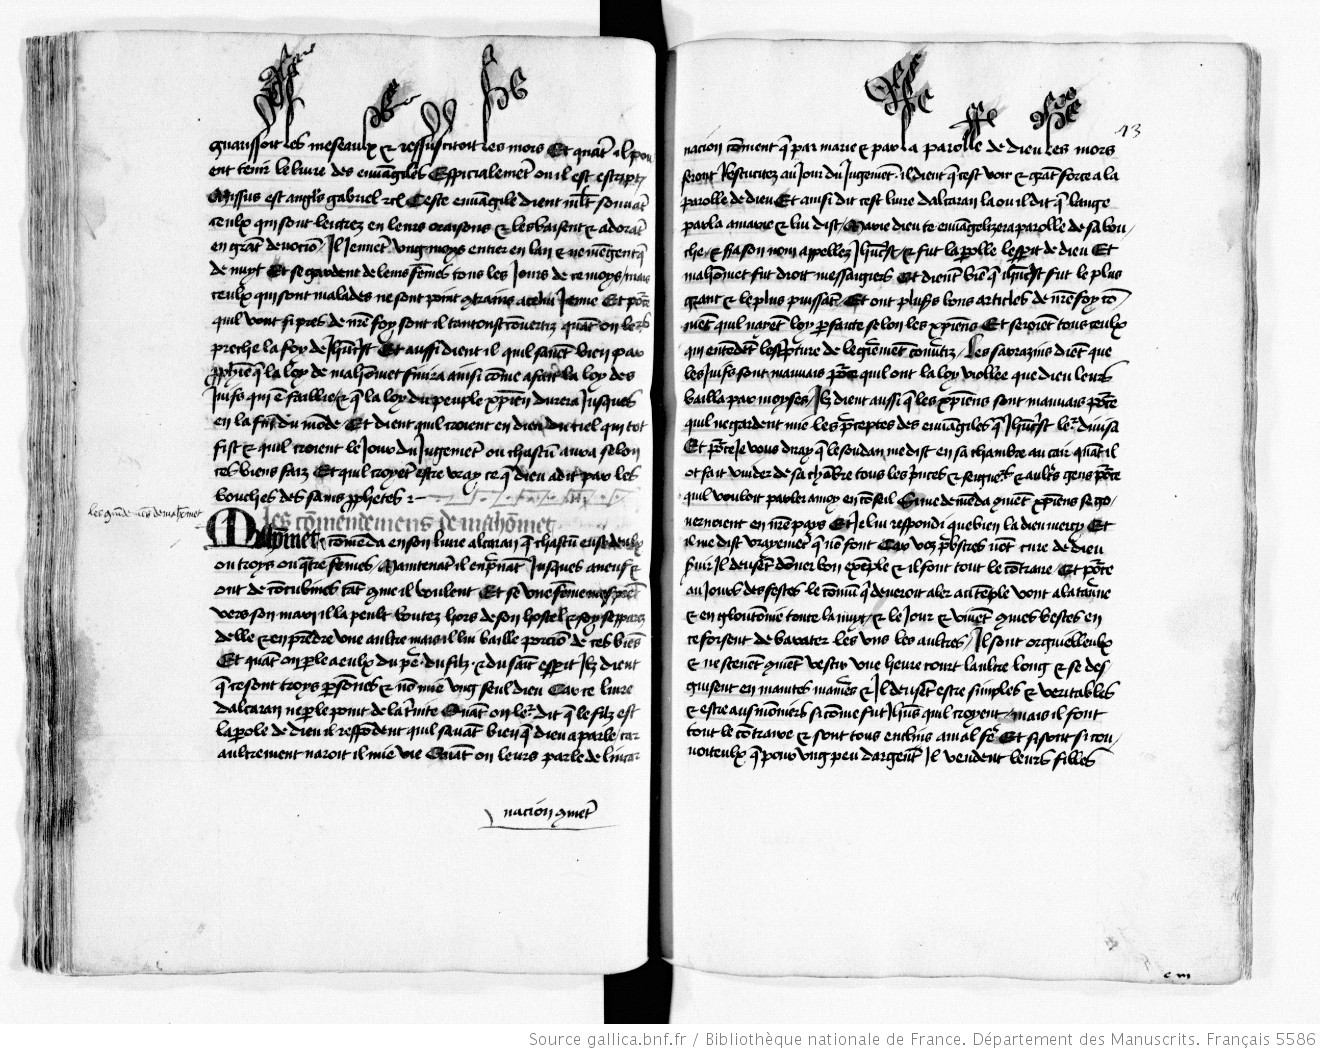 guarissoit les meseaulx et ressuscitoit les mors Et quāt il peu
ent tenir le livre des euvāgiles Especialemēt ou il est escript
Missus est angl's gabriel Ceste euvāgile dient mlt souvāt
ceulx qui sont lectrez en leurs oraisons & les baisent & adorāt
en grāt devotiō Il Jeunēt ung moys entier en lan & ne mēgent q̄
de nuyt Et se gardent de leurs fēmes tous les Jours de ce moys / mais
ceulx qui sont malades ne sont point 9trains a celui Jeune Et
quil vont si pres de nr̄e foy sont il tantoust cōvertiz quāt on le's
preche la foy de Jhūcst Et aussi dient il quil savēt bien par
pphīe q̄ la loy de mahōmet finira ainsi cōme a fait la loy des
Juifs qui ē faillie & q̄ la loy du peuple xp̄ien durera Jusques
en la fin du mōde Et dient quil croient en dieu du ciel qui tot
fist & quil croient le Jour du Jugemēt ou chascū aura selon
ces biens faiz Et quil croyēt estre vray ce q̄ dieu a dit par les
bouches des sains pphetes
les cōmendemens de mahōmet
Mahōmet cōmēda en son livre alcaran q̄ chascū eust deulx
ou troys ou q̄tre fēmes / Maintenāt il en prēnāt Jusques a neuf &
ont de cōcubines tāt 9me il veulent Et se une fēme
vers son mary il la peult boutez hors de son hostel & soy
delle & en prēdre une aultre mais il lui baille porciō de ces biēs
Et quāt on ple a eulx du pe' du filz & du saīt esperit Ilz dient
q̄ ce sont troys psōnes & nō mie ung seul dieu Car ce livre
dalcaran ne ple point de la t'nite Quāt on le' dit q̄ le filz est
la pole de dieu il respōdent quil savāt bien q̄ dieu a parle / car
aultrement naroit il mie vie Quāt on leurs parle de lincar
nacion 9met
13
nacion cōment q̄ par marie & par la parolle de dieu les mors
seront Resucitez au Jour du Jugemēt il dient q̄ cest voir & grāt force a la
parolle de dieu Et ainsi dit cest livre dalcaran la ou il dit q̄ lange
parla a marie & lui dist / Marie dieu te euvāgelizera parolle de sa bou
che & sa son nom appellez Jhūcrst & fut la polle lesprit de dieu Et
mahōmet fut droit messaigiers Et diēt biē q̄ ihūcrst fut le plus
grant & le plus puissāt Et ont plus's bons articles de nr̄e foy cō
mēt quil narēt loy pfaite selon les xp̄iens Et seroiēt tous ceulx
qui entēdēt lescpture de legieremēt convtiz / Les sarazins diēt que
les Juifs sont mauvais quil ont la loy viollee que dieu leurs
bailla par moyses / Ilz dient aussi q̄ les xp̄iens sont mauvais
quil ne gardent mie les pceptes des euvāgiles q̄ Jhūcrst le' divisa
Et Je vous diray q̄ le soudan me dist en sa chambre au cair quāt il
ot fait vuider de sa chābre tous les princes & seigneurs & aultrs gens
quil vouloit parler a moy en cōseil Il me demēda 9mēt xp̄iens se go
vernoient en nr̄e pays Et Je lui respondi que bien la dieu mercy Et
il me dist vrayemēt q̄ nō font Car voz pbstres nōt cure de dieu
servir Il devssēt dōner bon exēple & il font tout le cōtraire Et
au Jours des festes le cōmū q̄ deveroit aler au tēple vont a la taverne
& en gloutōnie toute la nuyt & le Jour & vivēt 9mes bestes en
ce forsent de barater les uns les aultres / Il sont orguilleulx
& ne scevent 9mēt vestir une heure court laultre lōg & se des
guisent en maintes manies & Il devssēt estre simples & veritables
& estre ausmōniers si cōme fut Jhūs quil croyent mais il font
tout le cōtraire & sont tous enclins a mal fe' Et si sont si cou
voiteulx q̄ pour ung peu dargent Il vendent leurs filles
Source gallica.bnf.fr / Bibliothèque nationale de France. Département des Manuscrits. Français 5586